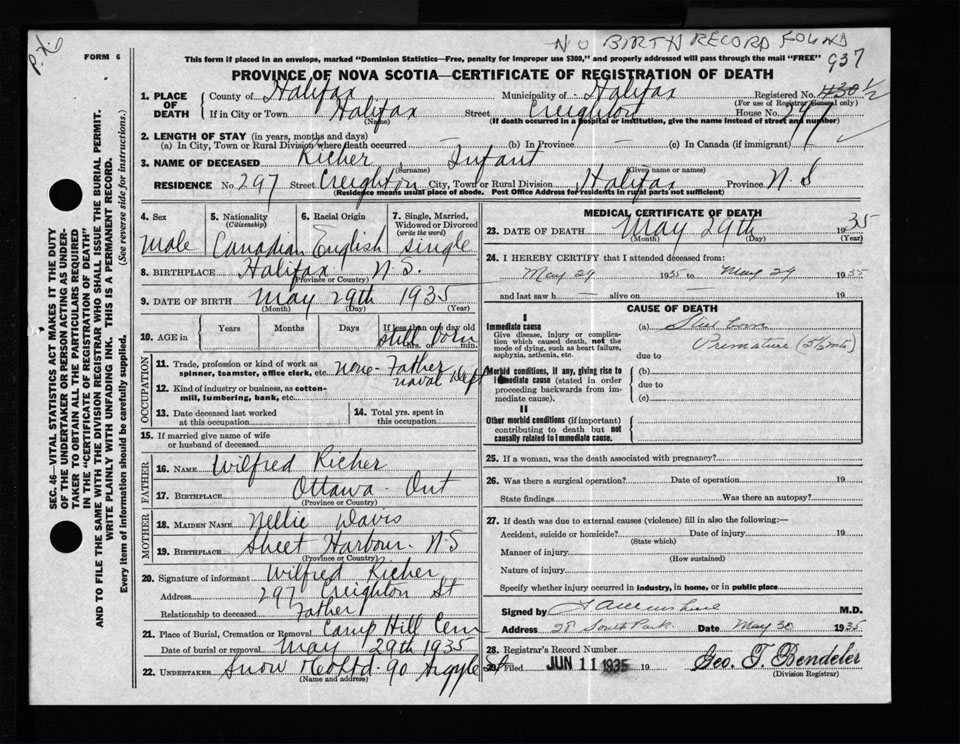 NO BIRTH RECORD FOUND
FORM 6
This form if placed in an envelope, marked "Dominion Statistics—Free, penalty for improper use $300," and properly addressed will pass through the mail "FREE"
937
PROVINCE OF NOVA SCOTIA—CERTIFICATE OF REGISTRATION OF DEATH
1. PLACE OF DEATH
County of Halifax Municipality of Halifax Registered No.
(For use of Registrar General only)
If in City or Town Halifax Street Creighton House No. 297
(Name) (If death occurred in a hospital or institution, give the name instead of street and number)
2. LENGTH OF STAY (in years, months and days)
(a) In City, Town or Rural Division where death occurred (b) In Province — (c) In Canada (if immigrant)
3. NAME OF DECEASED Richer, Infant
(Surname) (Given name or names)
RESIDENCE No. 297 Street Creighton City, Town or Rural Division Halifax Province N S
(Residence means usual place of abode. Post Office Address for Rural parts not sufficient)
4. Sex
Male
5. Nationality
(Citizenship)
Canadian
6. Racial Origin
English
7. Single, Married, Widowed or Divorced
(write the word)
single
8. BIRTHPLACE Halifax N.S.
(Province or Country)
9. DATE OF BIRTH May 29th 1935
(Month) (Day) (Year)
10. AGE in Years Months Days If less than one day old
still born
hrs. or min.
OCCUPATION
11. Trade, profession or kind of work as spinner, teamster, office clerk, etc. none - Father
naval Dept
12. Kind of industry or business, as cotton-mill, lumbering, bank, etc.
13. Date deceased last worked at this occupation
14. Total yrs. spent in this occupation
15. If married give name of wife or husband of deceased
FATHER
16. NAME Wilfred Richer
17. BIRTHPLACE Ottawa Ont
(Province or Country)
MOTHER
18. MAIDEN NAME Nellie Davis
19. BIRTHPLACE Sheet Harbour N S
(Province or Country)
20. Signature of informant Wilfred Richer
Address 297 Creighton St
Relationship to deceased Father
21. Place of Burial, Cremation or Removal Camp Hill Cem
Date of burial or removal May 29th 1935
22. UNDERTAKER Snow & Co Ltd. 90 Argyle St
(Name and address)
MEDICAL CERTIFICATE OF DEATH
23. DATE OF DEATH May 29th 1935
(Month) (Day) (Year)
24. I HEREBY CERTIFY that I attended deceased from:
May 29 1935 to May 29 1935
and last saw h — alive on — 19
CAUSE OF DEATH
I
Immediate cause
Give disease, injury or complication which caused death, not the mode of dying, such as heart failure, asphyxia, asthenia, etc.
(a) Still born
due to Premature (5½ mts)
Morbid conditions, if any, giving rise to immediate cause (stated in order proceeding backwards from immediate cause).
(b)
due to
(c)
II
Other morbid conditions (if important) contributing to death but not causally related to immediate cause.
25. If a woman, was the death associated with pregnancy?
26. Was there a surgical operation? Date of operation 19
State findings Was there an autopsy?
27. If death was due to external causes (violence) fill in also the following:—
Accident, suicide or homicide? Date of injury 19
(State which)
Manner of injury
(How sustained)
Nature of injury
Specify whether injury occurred in industry, in home, or in public place
Signed by M.D.
Address 28 South Park Date May 30 1935
28. Registrar's Record Number
29. Filed JUN 11 1935 19 Geo. T. Bendeler
(Division Registrar)
SEC. 46—VITAL STATISTICS ACT MAKES IT THE DUTY
OF THE UNDERTAKER OR PERSON ACTING AS UNDER-
TAKER TO OBTAIN ALL THE PARTICULARS REQUIRED
IN THE "CERTIFICATE OF REGISTRATION OF DEATH"
AND TO FILE THE SAME WITH THE DIVISION REGISTRAR WHO SHALL ISSUE THE BURIAL PERMIT.
WRITE PLAINLY WITH UNFADING INK. THIS IS A PERMANENT RECORD.
Every item of information should be carefully supplied. (See reverse side for instructions.)